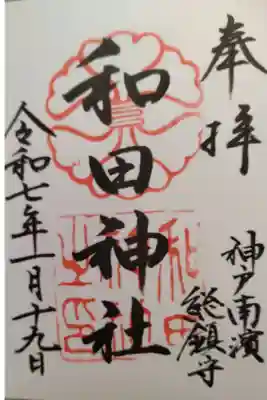 奉拝
神戸南濱
総鎮守
和田神社
令和七年一月十九日